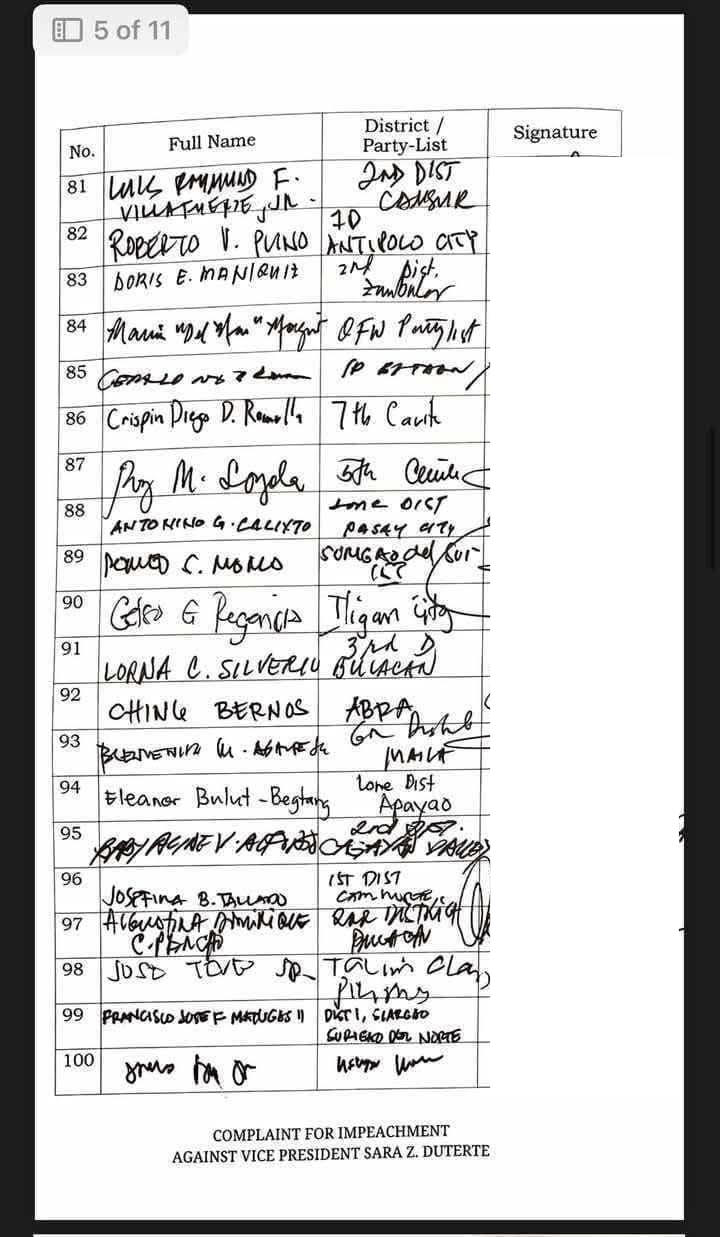 5 of 11
No. Full Name District / Party-List Signature
81 LUIS RAYMUND F. VILLAFUERTE, JR. 2ND DIST CAMSUR
82 ROBERTO V. PUNO 1D ANTIPOLO CITY
83 DORIS E. MANIQUIZ 2nd Dist. Zambales
84 Maria "Del Mar" OFW Partylist
85
86 Crispin Diego D. Remulla 7th Cavite
87 Roy M. Loyola 5th Cavite
88 ANTONINO G. CALIXTO Lone DIST PASAY CITY
89 ROMEO S. MOMO SURIGAO del Sur 1ST
90 Celso G Regencia Iligan City
91 LORNA C. SILVERIO 3rd D BULACAN
92 CHING BERNOS ABRA
93 6th District MANILA
94 Eleanor Bulut-Begtang Lone Dist Apayao
95 BABY ALINE V. ALFONSO 2nd DIST. CAGAYAN VALLEY
96 JOSEFINA B. TALLADO 1ST DIST CAM NORTE
97 AGUSTINA DOMINIQUE C. PANCHO 2ND DISTRICT BULACAN
98 JOSE
99 FRANCISCO JOSE F MATUGAS II DIST 1, SIARGAO SURIGAO DEL NORTE
100
COMPLAINT FOR IMPEACHMENT
AGAINST VICE PRESIDENT SARA Z. DUTERTE